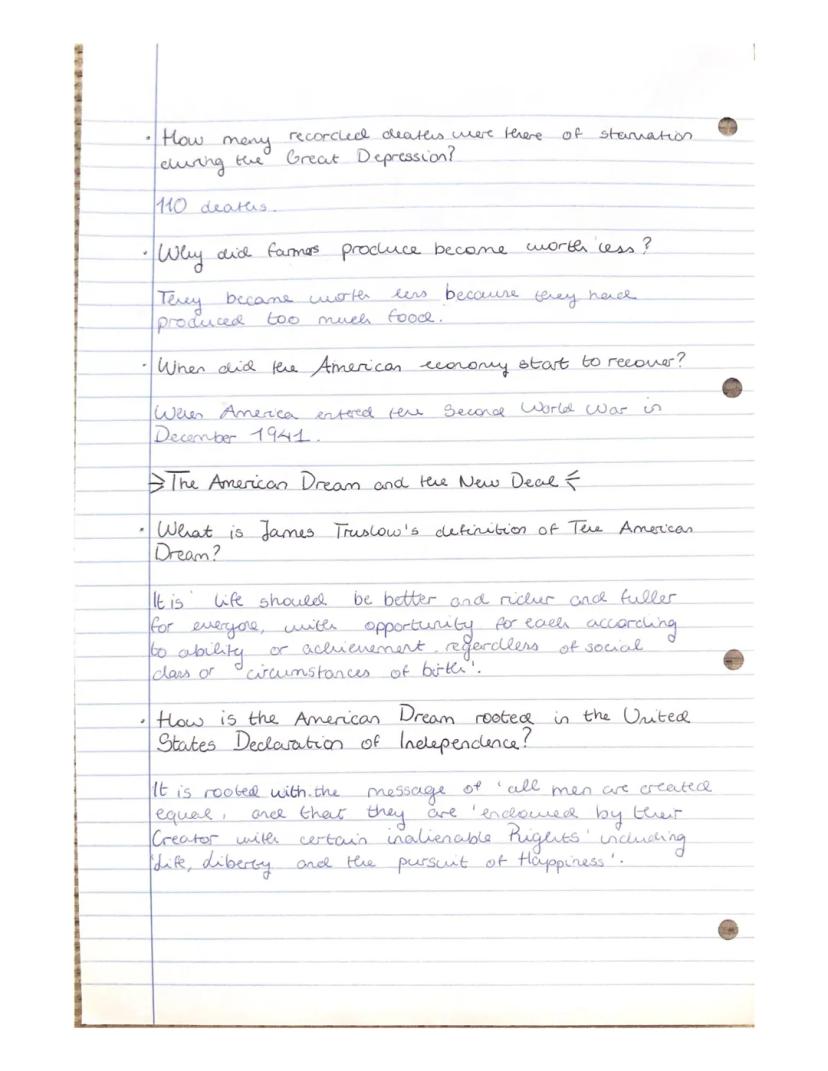 · How many recorded deaths were there of starvation
during the Great Depression?
110 deaths.
· Why did farmers produce become worth less?
They became worth less because they had
produced too much food.
· When did the American economy start to recover?
When America entered the Second World War in
December 1941.
→ The American Dream and the New Deal ←
· What is James Truslow's definition of The American
Dream?
It is 'life should be better and richer and fuller
for everyone, with opportunity for each according
to ability or achievement regardless of social
class or circumstances of birth'.
· How is the American Dream rooted in the United
States Declaration of Independence?
It is rooted with the message of 'all men are created
equal, and that they are 'endowed by their
Creator with certain inalienable Rights' including
'Life, Liberty and the pursuit of Happiness'.